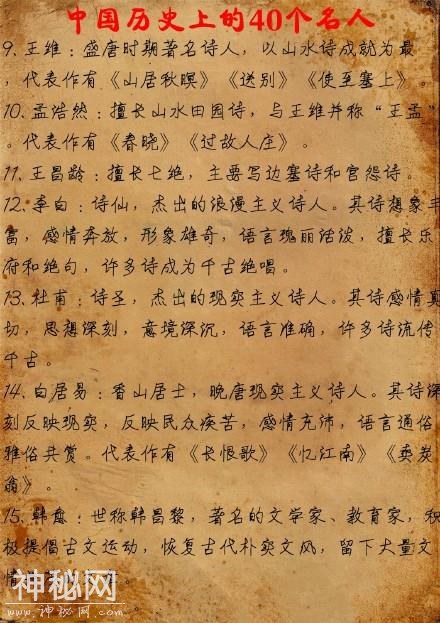 中国历史上的40个名人
9. 王维：盛唐时期著名诗人，以山水诗成就为最
，代表作有《山居秋暝》《送别》《使至塞上》。
10. 孟浩然：擅长山水田园诗，与王维并称“王孟”
。代表作有《春晓》《过故人庄》。
11. 王昌龄：擅长七绝，主要写边塞诗和宫怨诗。
12. 李白：诗仙，杰出的浪漫主义诗人。其诗想象丰
富，感情奔放，形象雄奇，语言瑰丽活泼，擅长乐
府和绝句，许多诗成为千古绝唱。
13. 杜甫：诗圣，杰出的现实主义诗人。其诗感情真
切，思想深刻，意境深沉，语言准确，许多诗流传
千古。
14. 白居易：香山居士，晚唐现实主义诗人。其诗深
刻反映现实，反映民众疾苦，感情充沛，语言通俗
雅俗共赏。代表作有《长恨歌》《忆江南》《卖炭
翁》。
15. 韩愈：世称韩昌黎，著名的文学家、教育家，积
极提倡古文运动，恢复古代朴实文风，留下大量文
情
神秘网
www.神秘网.com